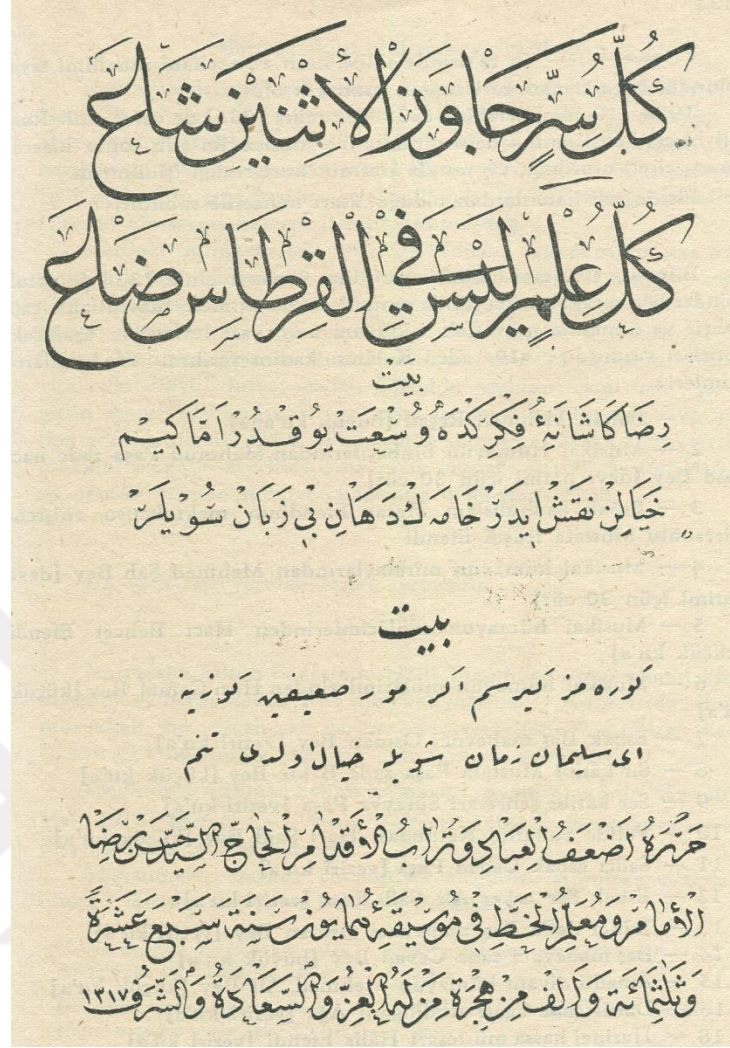 كُلُّ سِرٍّ جَاوَزَ الْاِثْنَيْنِ شَاعَ
كُلُّ عِلْمٍ لَيْسَ فِي الْقِرْطَاسِ ضَاعَ
بيت
رضا كاشانهٔ فكر كده وسعت يوقدر اما كيم
خيالن نقش ايدر خامه لك دهان بى زبان سويلر
بيت
كوره مز كيرسم كر مور ضعيفين كوزينه
اى سليمان زمان شويله خيال اولدى تنم
حَرَّرَهُ اَضْعَفُ الْعِبَادِ وَتُرَابُ الْاَقْدَامِ الْحَاجّ السَّيِّد حَسَن رِضَا
الْاِمَام وَمُعَلِّمُ الْخَطِّ فِي مُوسِيقَهٔ هُمَايُون سَنَة سَبْعَ عَشْرَةَ
وَثَلٰثُمِائَة وَاَلْف مِنْ هِجْرَةِ مَنْ لَهُ الْعِزُّ وَالسَّعَادَةُ وَالشَّرَفُ ١٣١٧